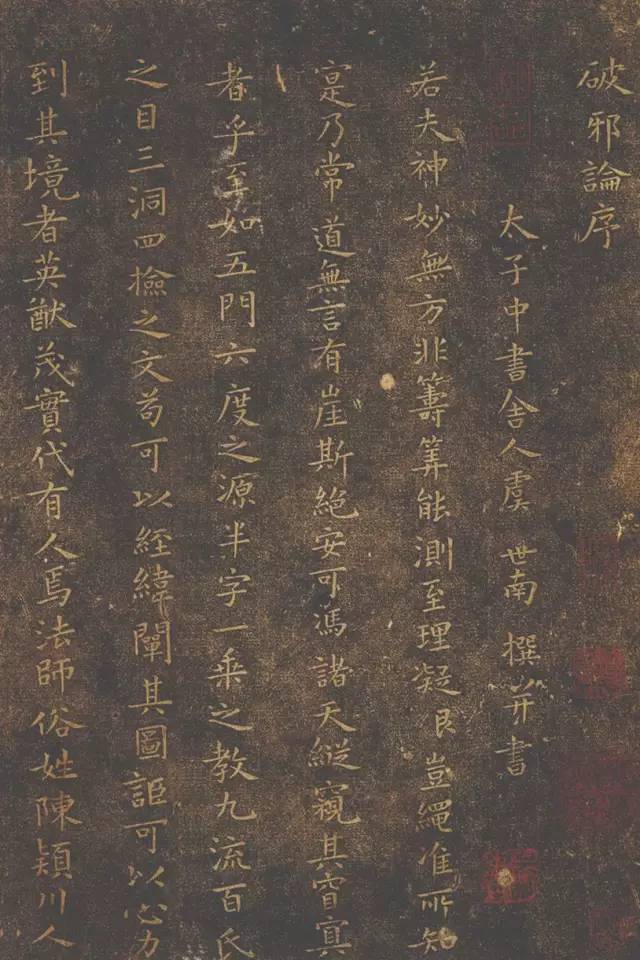 破邪論序
太子中書舍人虞世南撰并書
若夫神妙無方非籌筭能測至理凝豈繩准所知
寔乃常道無言有崖斯絕安可馮諸天縱窺其窅㝠
者乎至如五門六度之源半字一乘之教九流百氏
之目三洞四檢之文苟可以經緯闡其圖詎可以心力
到其境者英猷茂實代有人焉法師俗姓陳穎川人